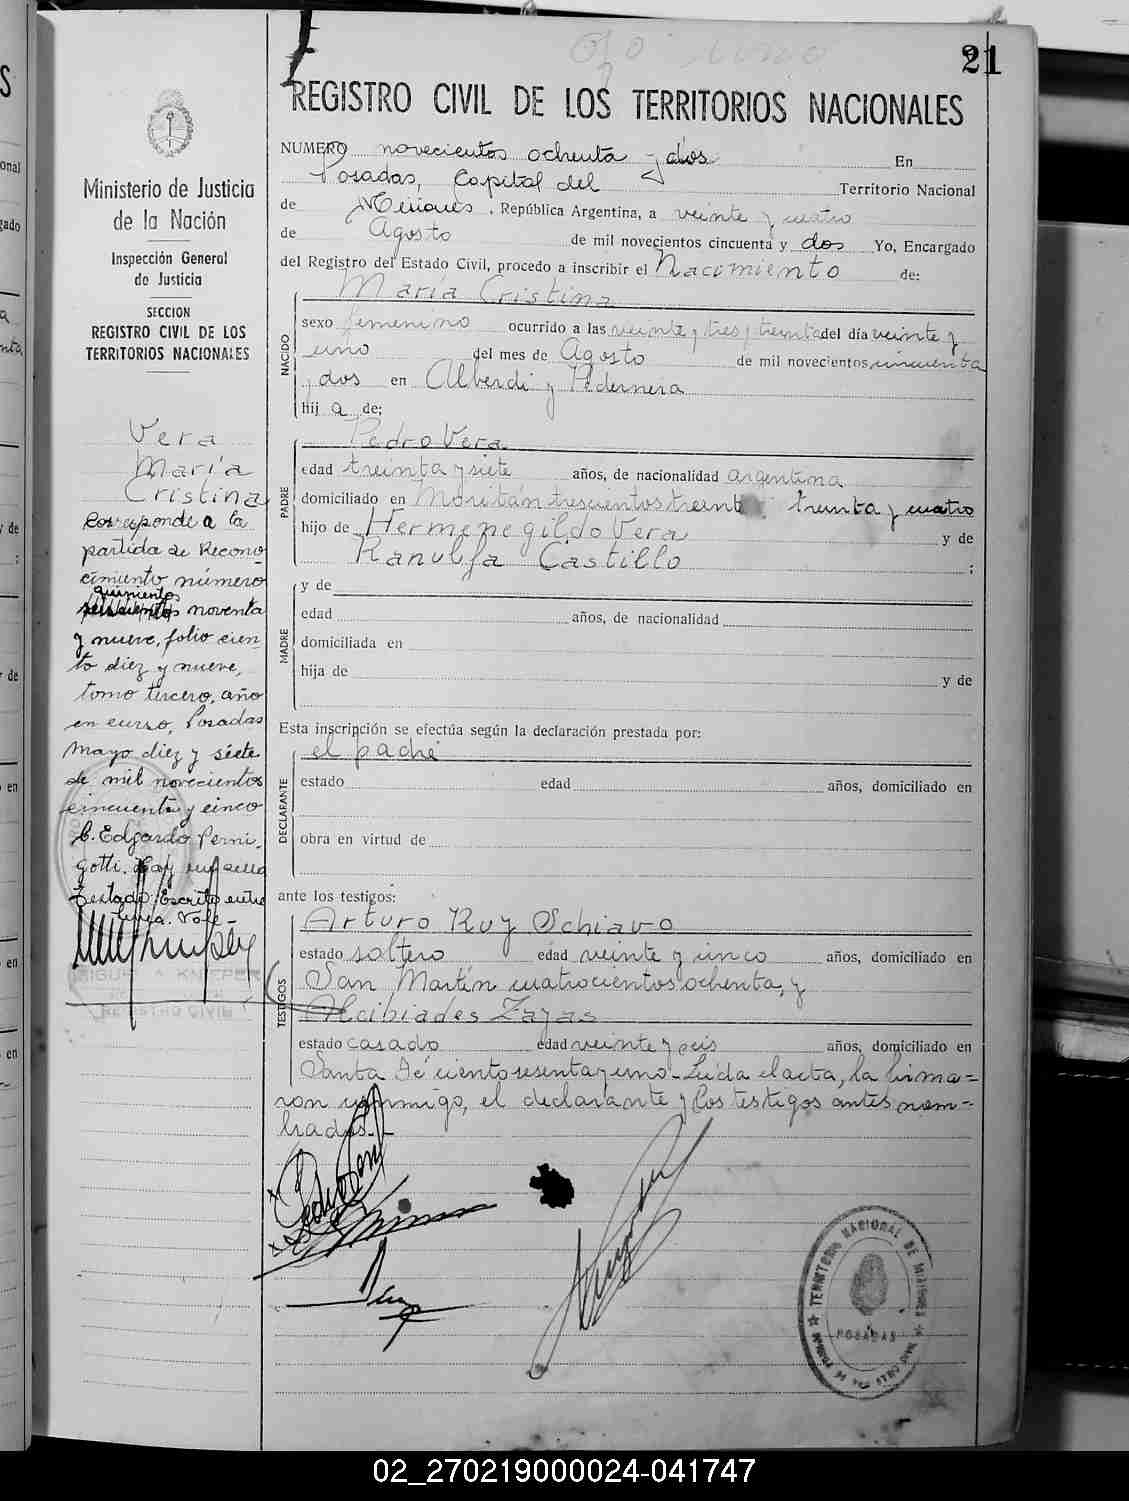 21
REGISTRO CIVIL DE LOS TERRITORIOS NACIONALES
Ministerio de Justicia
de la Nación
Inspección General
de Justicia
SECCION
REGISTRO CIVIL DE LOS
TERRITORIOS NACIONALES
Vera
María
Cristina
Corresponde a la
partida de Recono-
cimiento número
quinientos
noventa
y nueve, folio cien-
to diez y nueve,
tomo tercero, año
en curso, Posadas
Mayo diez y siete
de mil novecientos
cincuenta y cinco
C. Edgardo Perni-
gotti. Hay un sello
Testado. Escrito entre
linea. Vale-
REGISTRO CIVIL
NUMERO novecientos ochenta y dos En
Posadas, Capital del Territorio Nacional
de Misiones. República Argentina, a veinte y cuatro
de Agosto de mil novecientos cincuenta y dos Yo, Encargado
del Registro del Estado Civil, procedo a inscribir el Nacimiento de:
NACIDO
María Cristina
sexo femenino ocurrido a las veinte y tres y treinta del día veinte y
uno del mes de Agosto de mil novecientos cincuenta
y dos en Alberdi y Pedernera
hij a de;
PADRE
Pedro Vera
edad treinta y siete años, de nacionalidad argentina
domiciliado en trescientos treinta y cuatro
hijo de Hermenegildo Vera y de
Ranulfa Castillo ;
MADRE
y de
edad años, de nacionalidad
domiciliada en
hija de y de
Esta inscripción se efectúa según la declaración prestada por:
DECLARANTE
el padre
estado edad años, domiciliado en
obra en virtud de
ante los testigos:
TESTIGOS
Arturo Ruy Schiavo
estado soltero edad veinte y cinco años, domiciliado en
San Martín cuatrocientos ochenta, y
Alcibiades Zayas
estado casado edad veinte y seis años, domiciliado en
Santa Fé ciento sesenta y uno- Leída el acta, la firma-
ron conmigo, el declarante y los testigos antes nom-
brados.-
TERRITORIO NACIONAL DE MISIONES
POSADAS
02_270219000024-041747